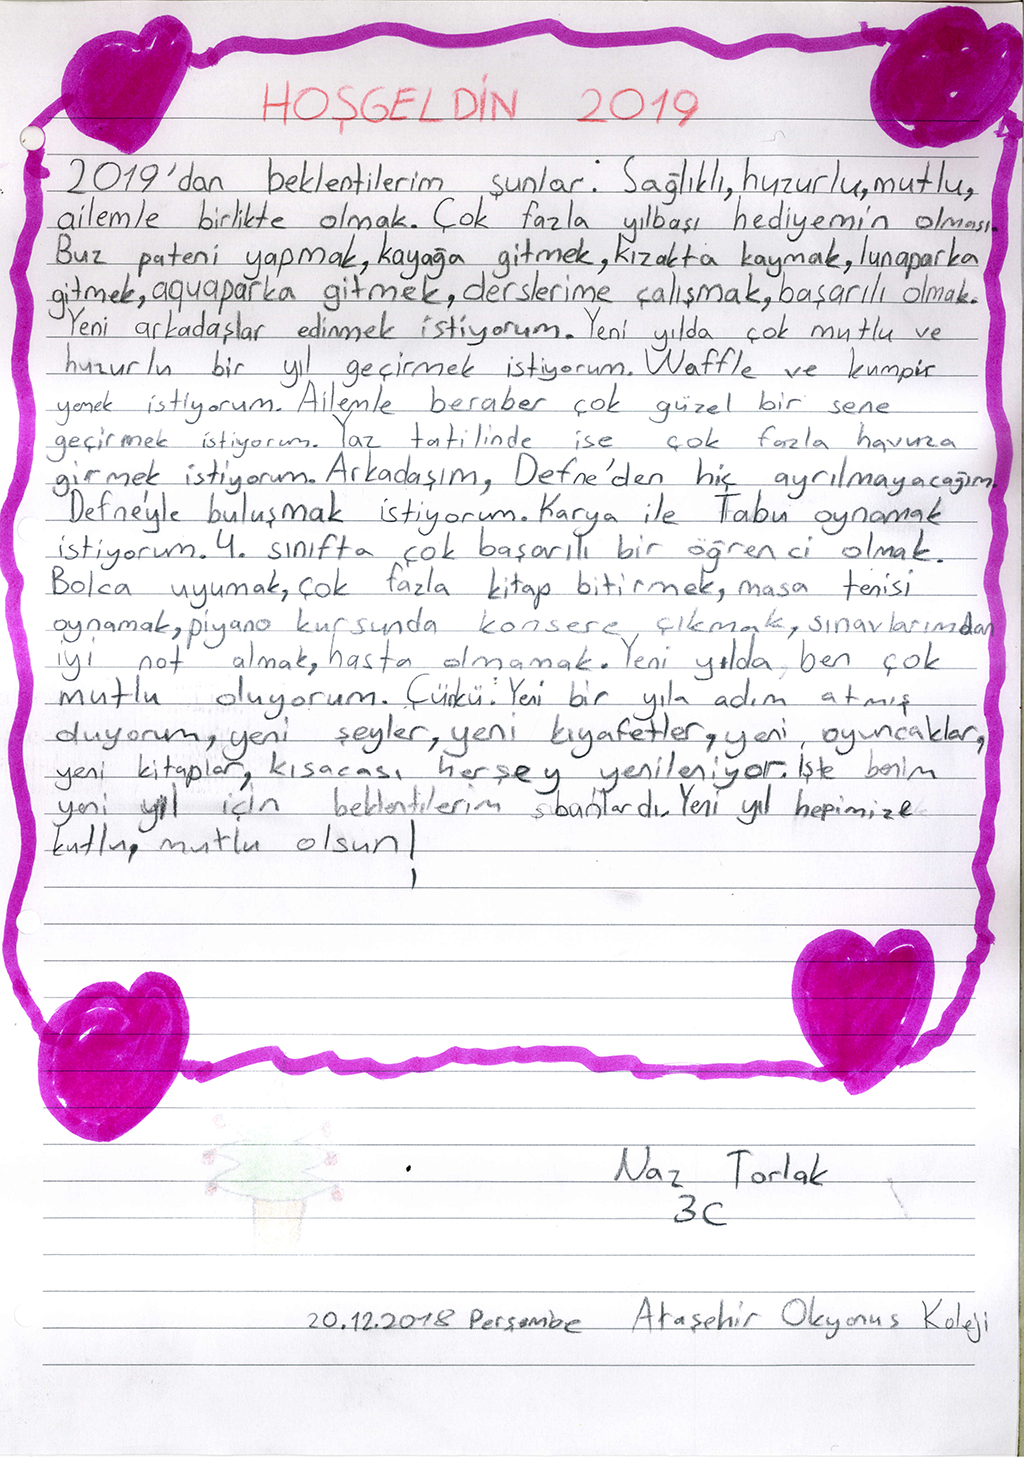 HOŞGELDİN 2019
2019'dan beklentilerim şunlar: Sağlıklı, huzurlu, mutlu,
ailemle birlikte olmak. Çok fazla yılbaşı hediyemin olması.
Buz pateni yapmak, kayağa gitmek, kızakta kaymak, lunaparka
gitmek, aquaparka gitmek, derslerime çalışmak, başarılı olmak.
Yeni arkadaşlar edinmek istiyorum. Yeni yılda çok mutlu ve
huzurlu bir yıl geçirmek istiyorum. Waffle ve kumpir
yemek istiyorum. Ailemle beraber çok güzel bir sene
geçirmek istiyorum. Yaz tatilinde ise çok fazla havuza
girmek istiyorum. Arkadaşım, Defne'den hiç ayrılmayacağım.
Defne'yle buluşmak istiyorum. Karya ile Tabu oynamak
istiyorum. 4. sınıfta çok başarılı bir öğrenci olmak.
Bolca uyumak, çok fazla kitap bitirmek, masa tenisi
oynamak, piyano kursunda konsere çıkmak, sınavlarımdan
iyi not almak, hasta olmamak. Yeni yılda ben çok
mutlu oluyorum. Çünkü: Yeni bir yıla adım atmış
duyorum, yeni şeyler, yeni kıyafetler, yeni oyuncaklar,
yeni kitaplar, kısacası herşey yenileniyor. İşte benim
yeni yıl için beklentilerim bunlardı. Yeni yıl hepimize
kutlu, mutlu olsun!
Naz Torlak
3C
20.12.2018 Perşembe Ataşehir Okyanus Koleji